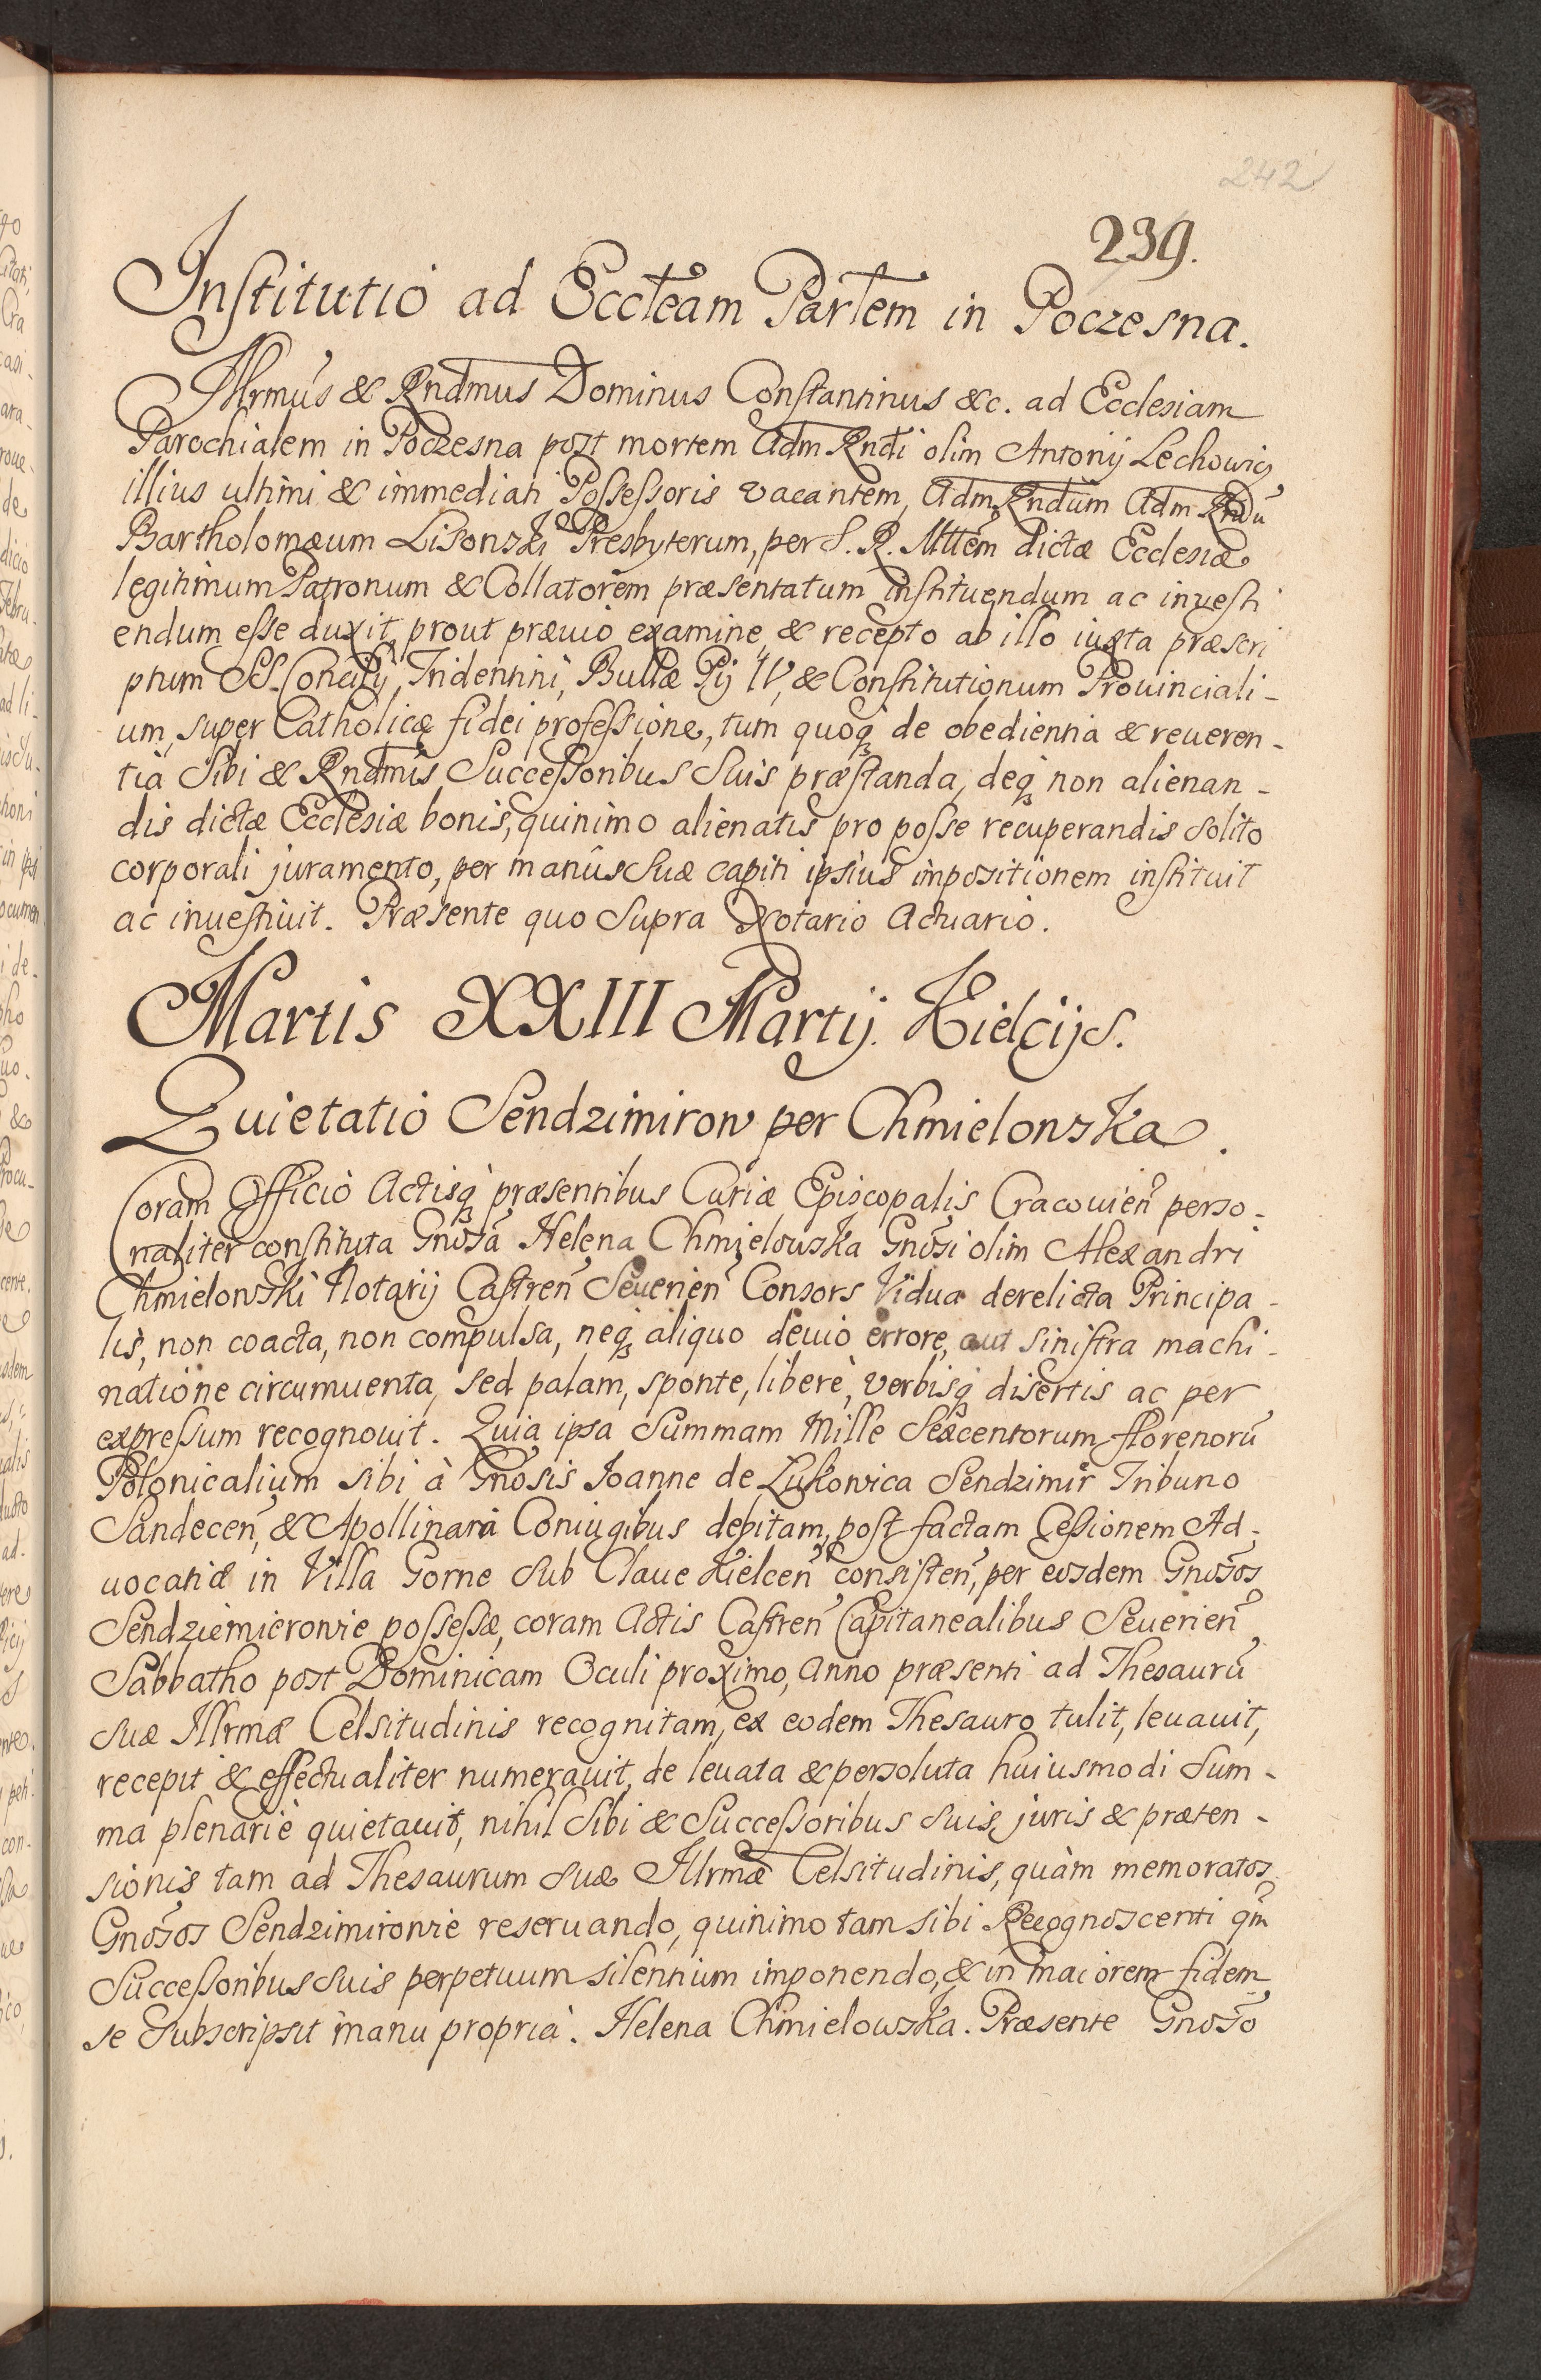 242
239.
Institutio ad Eccleam Parlem in Poczesna.
Illrmus & Rndmus Dominus Constantinus &c. ad Ecclesiam
Parochialem in Poczesna post mortem Adm Rndi olim Antonij Lechowicz
illius ultimi & immediati Possessoris vacantem, Adm Rndum Adm Rndū
Bartholomæum Lisonski Presbyterum, per S. R. Mttem dictæ Ecclesiæ
legitimum Patronum & Collatorem præsentatum instituendum ac investi
endum esse duxit, prout prævio examine, & recepto ab illo iuxta præscri
ptum SS. Concilij Tridentini, Bullæ Pij IV, & Constitutionum Prouinciali-
um, super Catholicæ fidei professione, tum quoq3 de obedientia & reueren-
tia Sibi & Rndmis Successoribus Suis præstanda, deq3 non alienan-
dis dictæ Ecclesiæ bonis, quinimo alienatis pro posse recuperandis solito
corporali juramento, per manus Suæ capiti ipsius impositionem instituit
ac inuestiuit. Præsente quo Supra Notario Actuario.
Martis XXIII Martij. Kielcijs.
Quietatio Sendzimirow per Chmielowska.
Coram Officio Actisq3 præsentibus Curiæ Episcopalis Cracouien perso-
naliter constituta Gnosa Helena Chmielowska Gnosi olim Alexandri
Chmielowski Notarij Castren Seuerien Consors Vidua derelicta Principa-
lis, non coacta, non compulsa, neq3 aliquo deuio errore, aut sinistra machi-
natione circumuenta, sed palam, sponte, liberè, verbisq3 disertis ac per
expressum recognouit. Quia ipsa Summam Mille Sexcentorum florenorū
Polonicalium sibi à Gnosis Ioanne de Zukowica Sendzimir Tribuno
Sandecen, & Apollinara Coniugibus debitam, post factam Cessionem Ad-
uocatiæ in Villa Gorne Sub Claue Kielcen consisten, per eosdem Gnosos
Sendziemierowie possessæ, coram Actis Castren Capitanealibus Seuerien
Sabbatho post Dominicam Oculi proximo, Anno præsenti ad Thesaurū
Suæ Illrmæ Celsitudinis recognitam, ex eodem Thesauro tulit, leuauit,
recepit & effectualiter numerauit, de leuata & persoluta huiusmodi Sum-
ma plenariè quietauit, nihil Sibi & Successoribus Suis, juris & præten-
sionis tam ad Thesaurum Suæ Illrmæ Celsitudinis, quàm memoratos
Gnosos Sendzimirowie reseruando, quinimo tam sibi Recognoscenti qm
Successoribus Suis perpetuum silentium imponendo, & in maiorem fidem
se Subscripsit manu propria. Helena Chmielowska. Præsente Gnoso